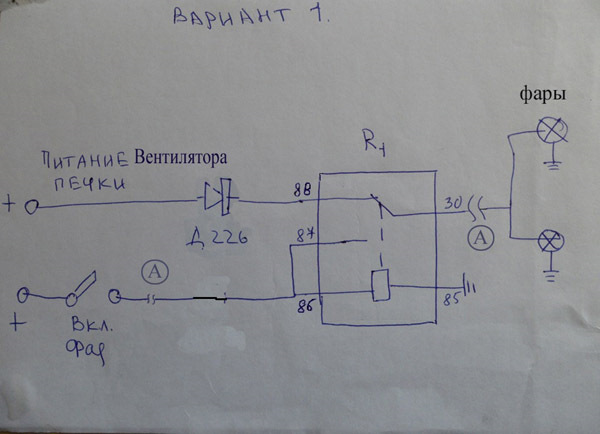 ВАРИАНТ 1.
фары
R1
ПИТАНИЕ Вентилятора
ПЕЧКИ
88
30
+
Д 226
А
87
А
86
85
+
Вкл.
Фар